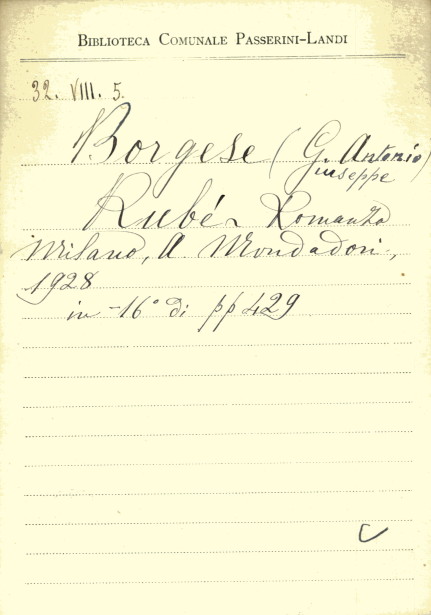 BIBLIOTECA COMUNALE PASSERINI-LANDI
32. VIII. 5.
Borgese (G. Antonio)
iuseppe
Rubé. Romanzo
Milano, A. Mondadori,
1928
in -16° di pp 429
C